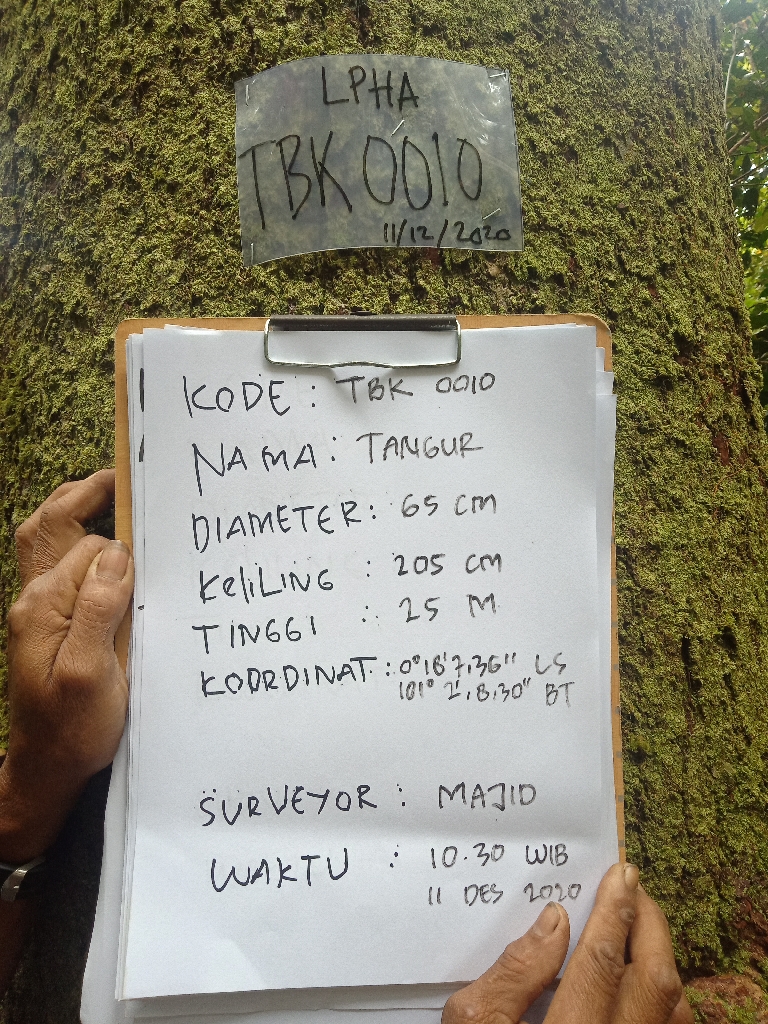 LPHA
TBK 0010
11/12/2020
KODE : TBK 0010
NAMA : TANGUR
DIAMETER : 65 cm
KeliLING : 205 cm
TINGGI : 25 M
KOORDINAT : 0°18'7,36" LS
101° 2', 8,30" BT
SURVEYOR : MAJID
WAKTU : 10.30 WIB
11 DES 2020